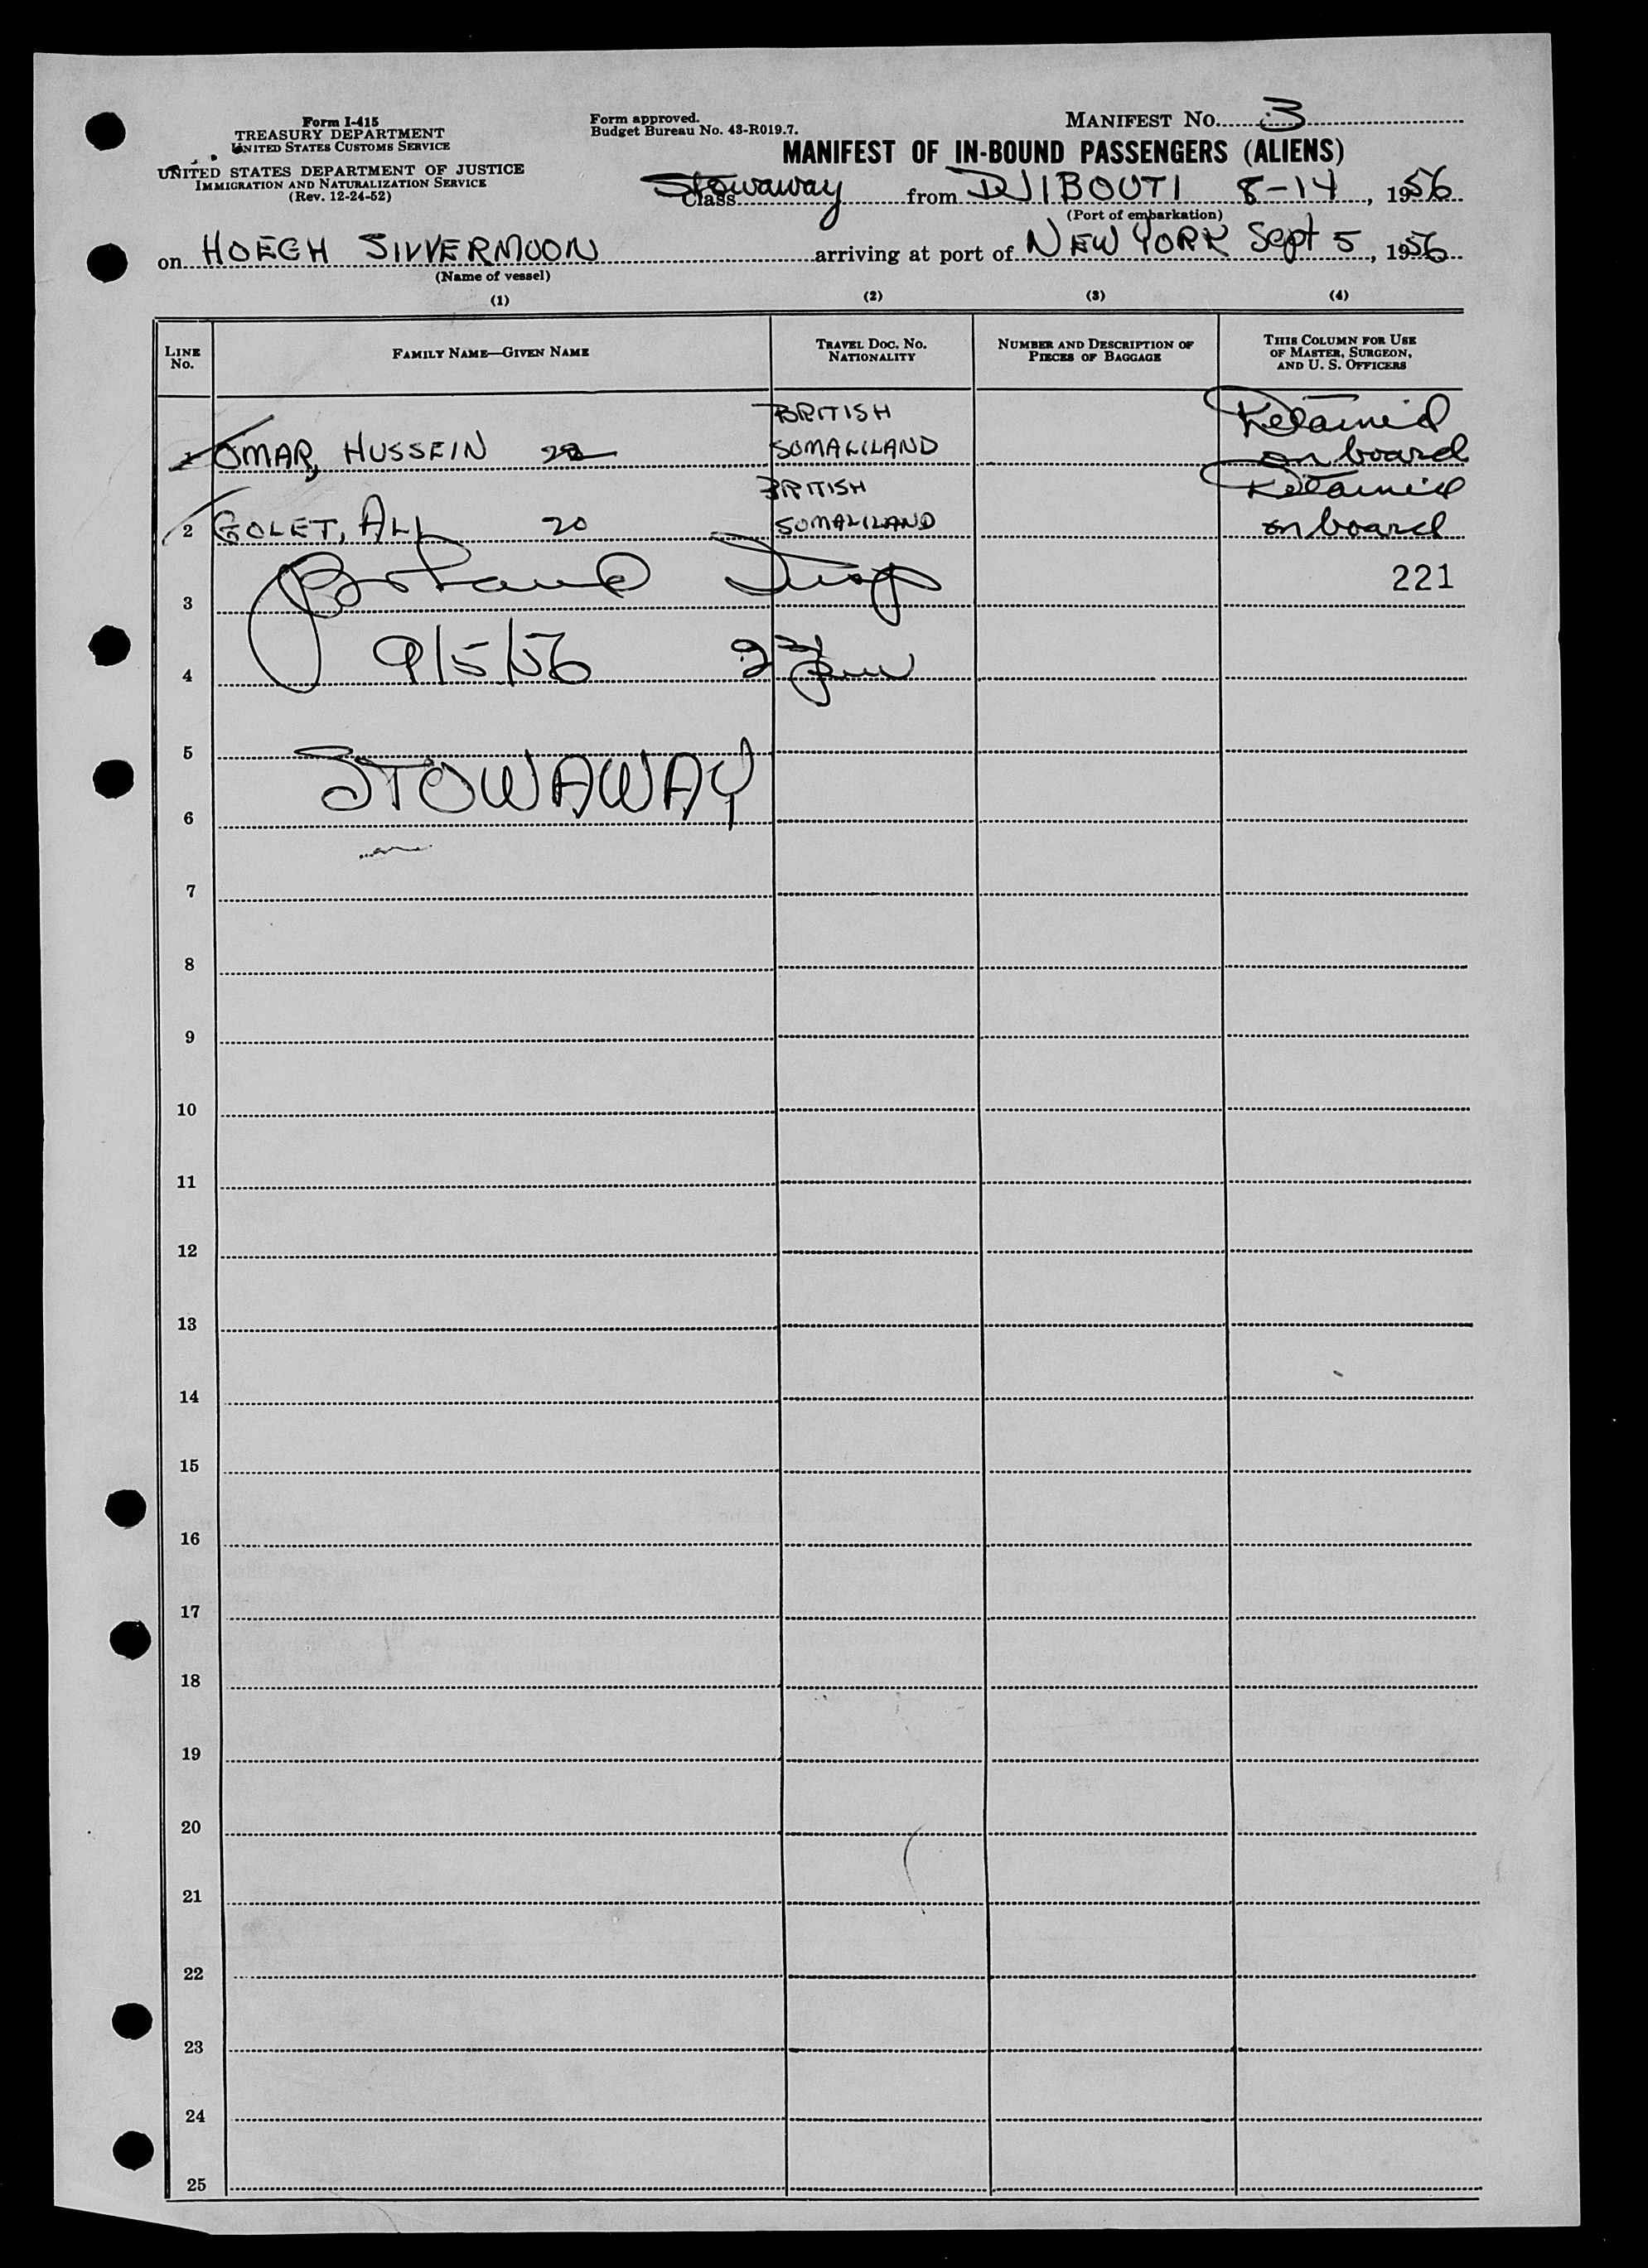 Form I-415
TREASURY DEPARTMENT
UNITED STATES CUSTOMS SERVICE
UNITED STATES DEPARTMENT OF JUSTICE
IMMIGRATION AND NATURALIZATION SERVICE
(Rev. 12-24-52)
Form approved.
Budget Bureau No. 43-R019.7.
MANIFEST No. 3
MANIFEST OF IN-BOUND PASSENGERS (ALIENS)
Stowaway Class from DJIBOUTI 8-14, 1956
(Port of embarkation)
on HOEGH SILVERMOON arriving at port of NEW YORK Sept 5, 1956
(Name of vessel)
(1) (2) (3) (4)
LINE No.
FAMILY NAME—GIVEN NAME
TRAVEL DOC. No. NATIONALITY
NUMBER AND DESCRIPTION OF PIECES OF BAGGAGE
THIS COLUMN FOR USE OF MASTER, SURGEON, AND U. S. OFFICERS
1 OMAR, HUSSEIN 22 BRITISH SOMALILAND Detained on board
2 GOLET, ALI 20 BRITISH SOMALILAND Detained on board
3 221
4 9/5/56
5
STOWAWAY
6
7
8
9
10
11
12
13
14
15
16
17
18
19
20
21
22
23
24
25